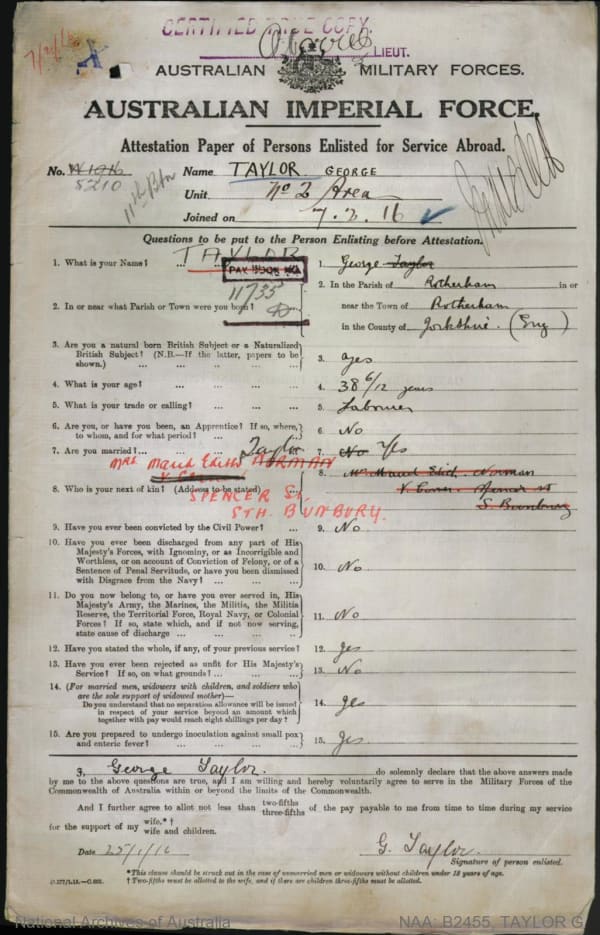 CERTIFIED TRUE COPY.
LIEUT.
AUSTRALIAN MILITARY FORCES.
AUSTRALIAN IMPERIAL FORCE.
Attestation Paper of Persons Enlisted for Service Abroad.
No. 5210 Name TAYLOR GEORGE
11th Btn Unit No 2 Area
Joined on 7.2.16
Questions to be put to the Person Enlisting before Attestation.
TAYLOR
1. What is your Name? ... ... 1. George Taylor
PAY BOOK No.
11735
2. In or near what Parish or Town were you born? 2. In the Parish of Rotherham in or
near the Town of Rotherham
in the County of Yorkshire. (Eng)
3. Are you a natural born British Subject or a Naturalized British Subject? (N.B.—If the latter, papers to be shown.) ... ... ... 3. Yes
4. What is your age? ... ... ... 4. 38 6/12 years
5. What is your trade or calling? ... ... ... 5. Labourer
6. Are you, or have you been, an Apprentice? If so, where, to whom, and for what period? ... ... 6. No
7. Are you married? ... ... ... 7. No Yes
Taylor
MRS Maud Edith NORMAN
8. Who is your next of kin? (Address to be stated) ... 8. Mrs Maud Edith Norman
SPENCER St.
STH. BUNBURY. S. Bunbury
9. Have you ever been convicted by the Civil Power? ... 9. No
10. Have you ever been discharged from any part of His Majesty's Forces, with Ignominy, or as Incorrigible and Worthless, or on account of Conviction of Felony, or of a Sentence of Penal Servitude, or have you been dismissed with Disgrace from the Navy? ... ... 10. No
11. Do you now belong to, or have you ever served in, His Majesty's Army, the Marines, the Militia, the Militia Reserve, the Territorial Force, Royal Navy, or Colonial Forces? If so, state which, and if not now serving, state cause of discharge ... ... ... 11. No
12. Have you stated the whole, if any, of your previous service? 12. Yes
13. Have you ever been rejected as unfit for His Majesty's Service? If so, on what grounds? ... ... 13. No
14. (For married men, widowers with children, and soldiers who are the sole support of widowed mother)—
Do you understand that no separation allowance will be issued in respect of your service beyond an amount which together with pay would reach eight shillings per day? 14. Yes
15. Are you prepared to undergo inoculation against small pox and enteric fever? ... ... ... 15. Yes
I, George Taylor. do solemnly declare that the above answers made
by me to the above questions are true, and I am willing and hereby voluntarily agree to serve in the Military Forces of the
Commonwealth of Australia within or beyond the limits of the Commonwealth.
And I further agree to allot not less than two-fifths three-fifths of the pay payable to me from time to time during my service
for the support of my wife,*† wife and children.
Date 25/1/16 G. Taylor.
Signature of person enlisted.
*This clause should be struck out in the case of unmarried men or widowers without children under 18 years of age.
† Two-fifths must be allotted to the wife, and if there are children three-fifths must be allotted.
National Archives of Australia NAA: B2455, TAYLOR G